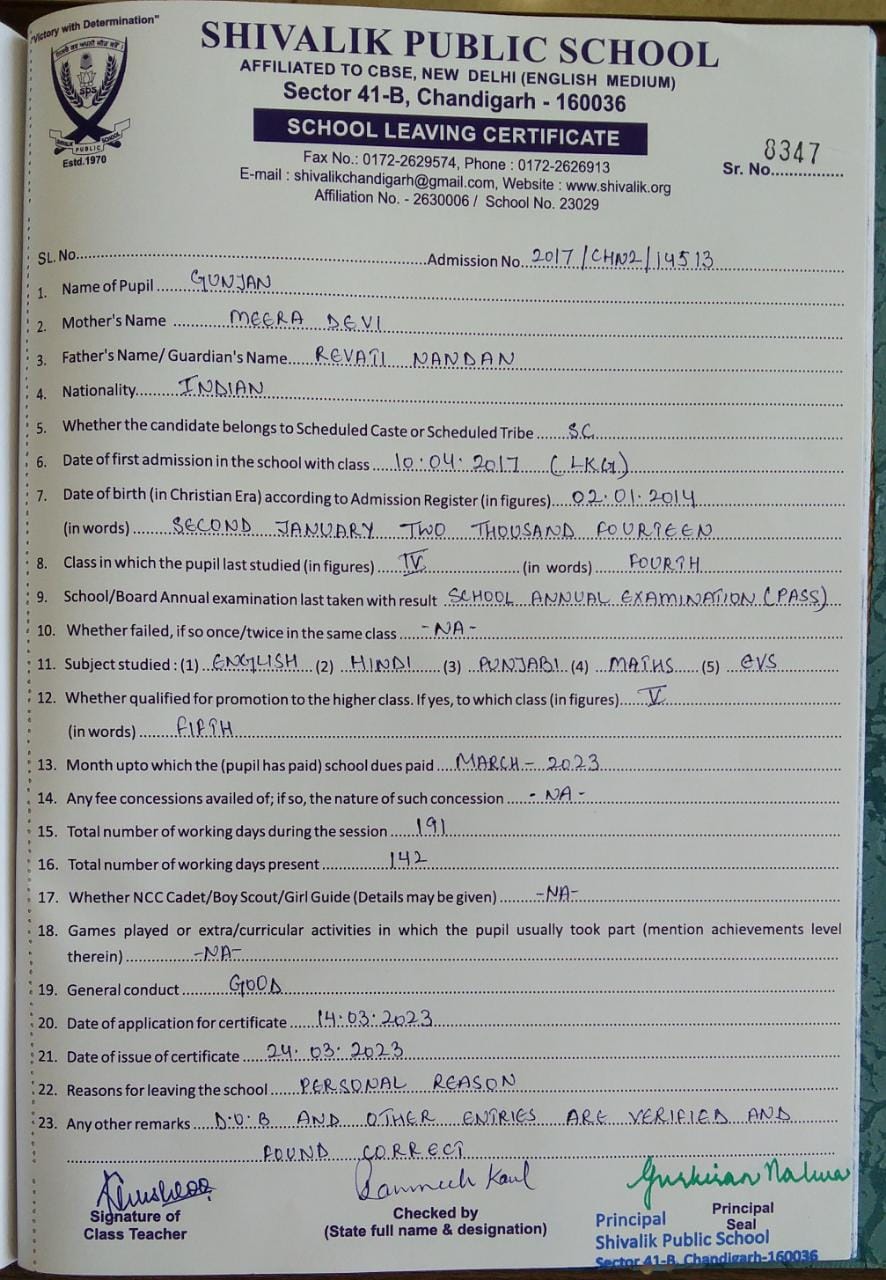 "Victory with Determination"
SHIVALIK PUBLIC SCHOOL
AFFILIATED TO CBSE, NEW DELHI (ENGLISH MEDIUM)
Sector 41-B, Chandigarh - 160036
SCHOOL LEAVING CERTIFICATE
SPS
SHIVALIK PUBLIC SCHOOL
Estd.1970
Fax No.: 0172-2629574, Phone : 0172-2626913
E-mail : shivalikchandigarh@gmail.com, Website : www.shivalik.org
Affiliation No. - 2630006 / School No. 23029
Sr. No. 8347
SL. No. Admission No. 2017/CHN2/14513
1. Name of Pupil GUNJAN
2. Mother's Name MEERA DEVI
3. Father's Name/ Guardian's Name REVATI NANDAN
4. Nationality INDIAN
5. Whether the candidate belongs to Scheduled Caste or Scheduled Tribe SC
6. Date of first admission in the school with class 10.04.2017 (LKG)
7. Date of birth (in Christian Era) according to Admission Register (in figures) 02.01.2014
(in words) SECOND JANUARY TWO THOUSAND FOURTEEN
8. Class in which the pupil last studied (in figures) IV (in words) FOURTH
9. School/Board Annual examination last taken with result SCHOOL ANNUAL EXAMINATION (PASS)
10. Whether failed, if so once/twice in the same class -NA-
11. Subject studied : (1) ENGLISH (2) HINDI (3) PUNJABI (4) MATHS (5) EVS
12. Whether qualified for promotion to the higher class. If yes, to which class (in figures) V
(in words) FIFTH
13. Month upto which the (pupil has paid) school dues paid MARCH - 2023
14. Any fee concessions availed of; if so, the nature of such concession - NA -
15. Total number of working days during the session 191
16. Total number of working days present 142
17. Whether NCC Cadet/Boy Scout/Girl Guide (Details may be given) -NA-
18. Games played or extra/curricular activities in which the pupil usually took part (mention achievements level
therein) -NA-
19. General conduct GOOD
20. Date of application for certificate 14.03.2023
21. Date of issue of certificate 24.03.2023
22. Reasons for leaving the school PERSONAL REASON
23. Any other remarks D.O.B AND OTHER ENTRIES ARE VERIFIED AND
FOUND CORRECT
Kaul Gurkiran Nalwa
Signature of
Class Teacher
Checked by
(State full name & designation)
Principal
Seal
Principal
Shivalik Public School
Sector 41-B, Chandigarh-160036